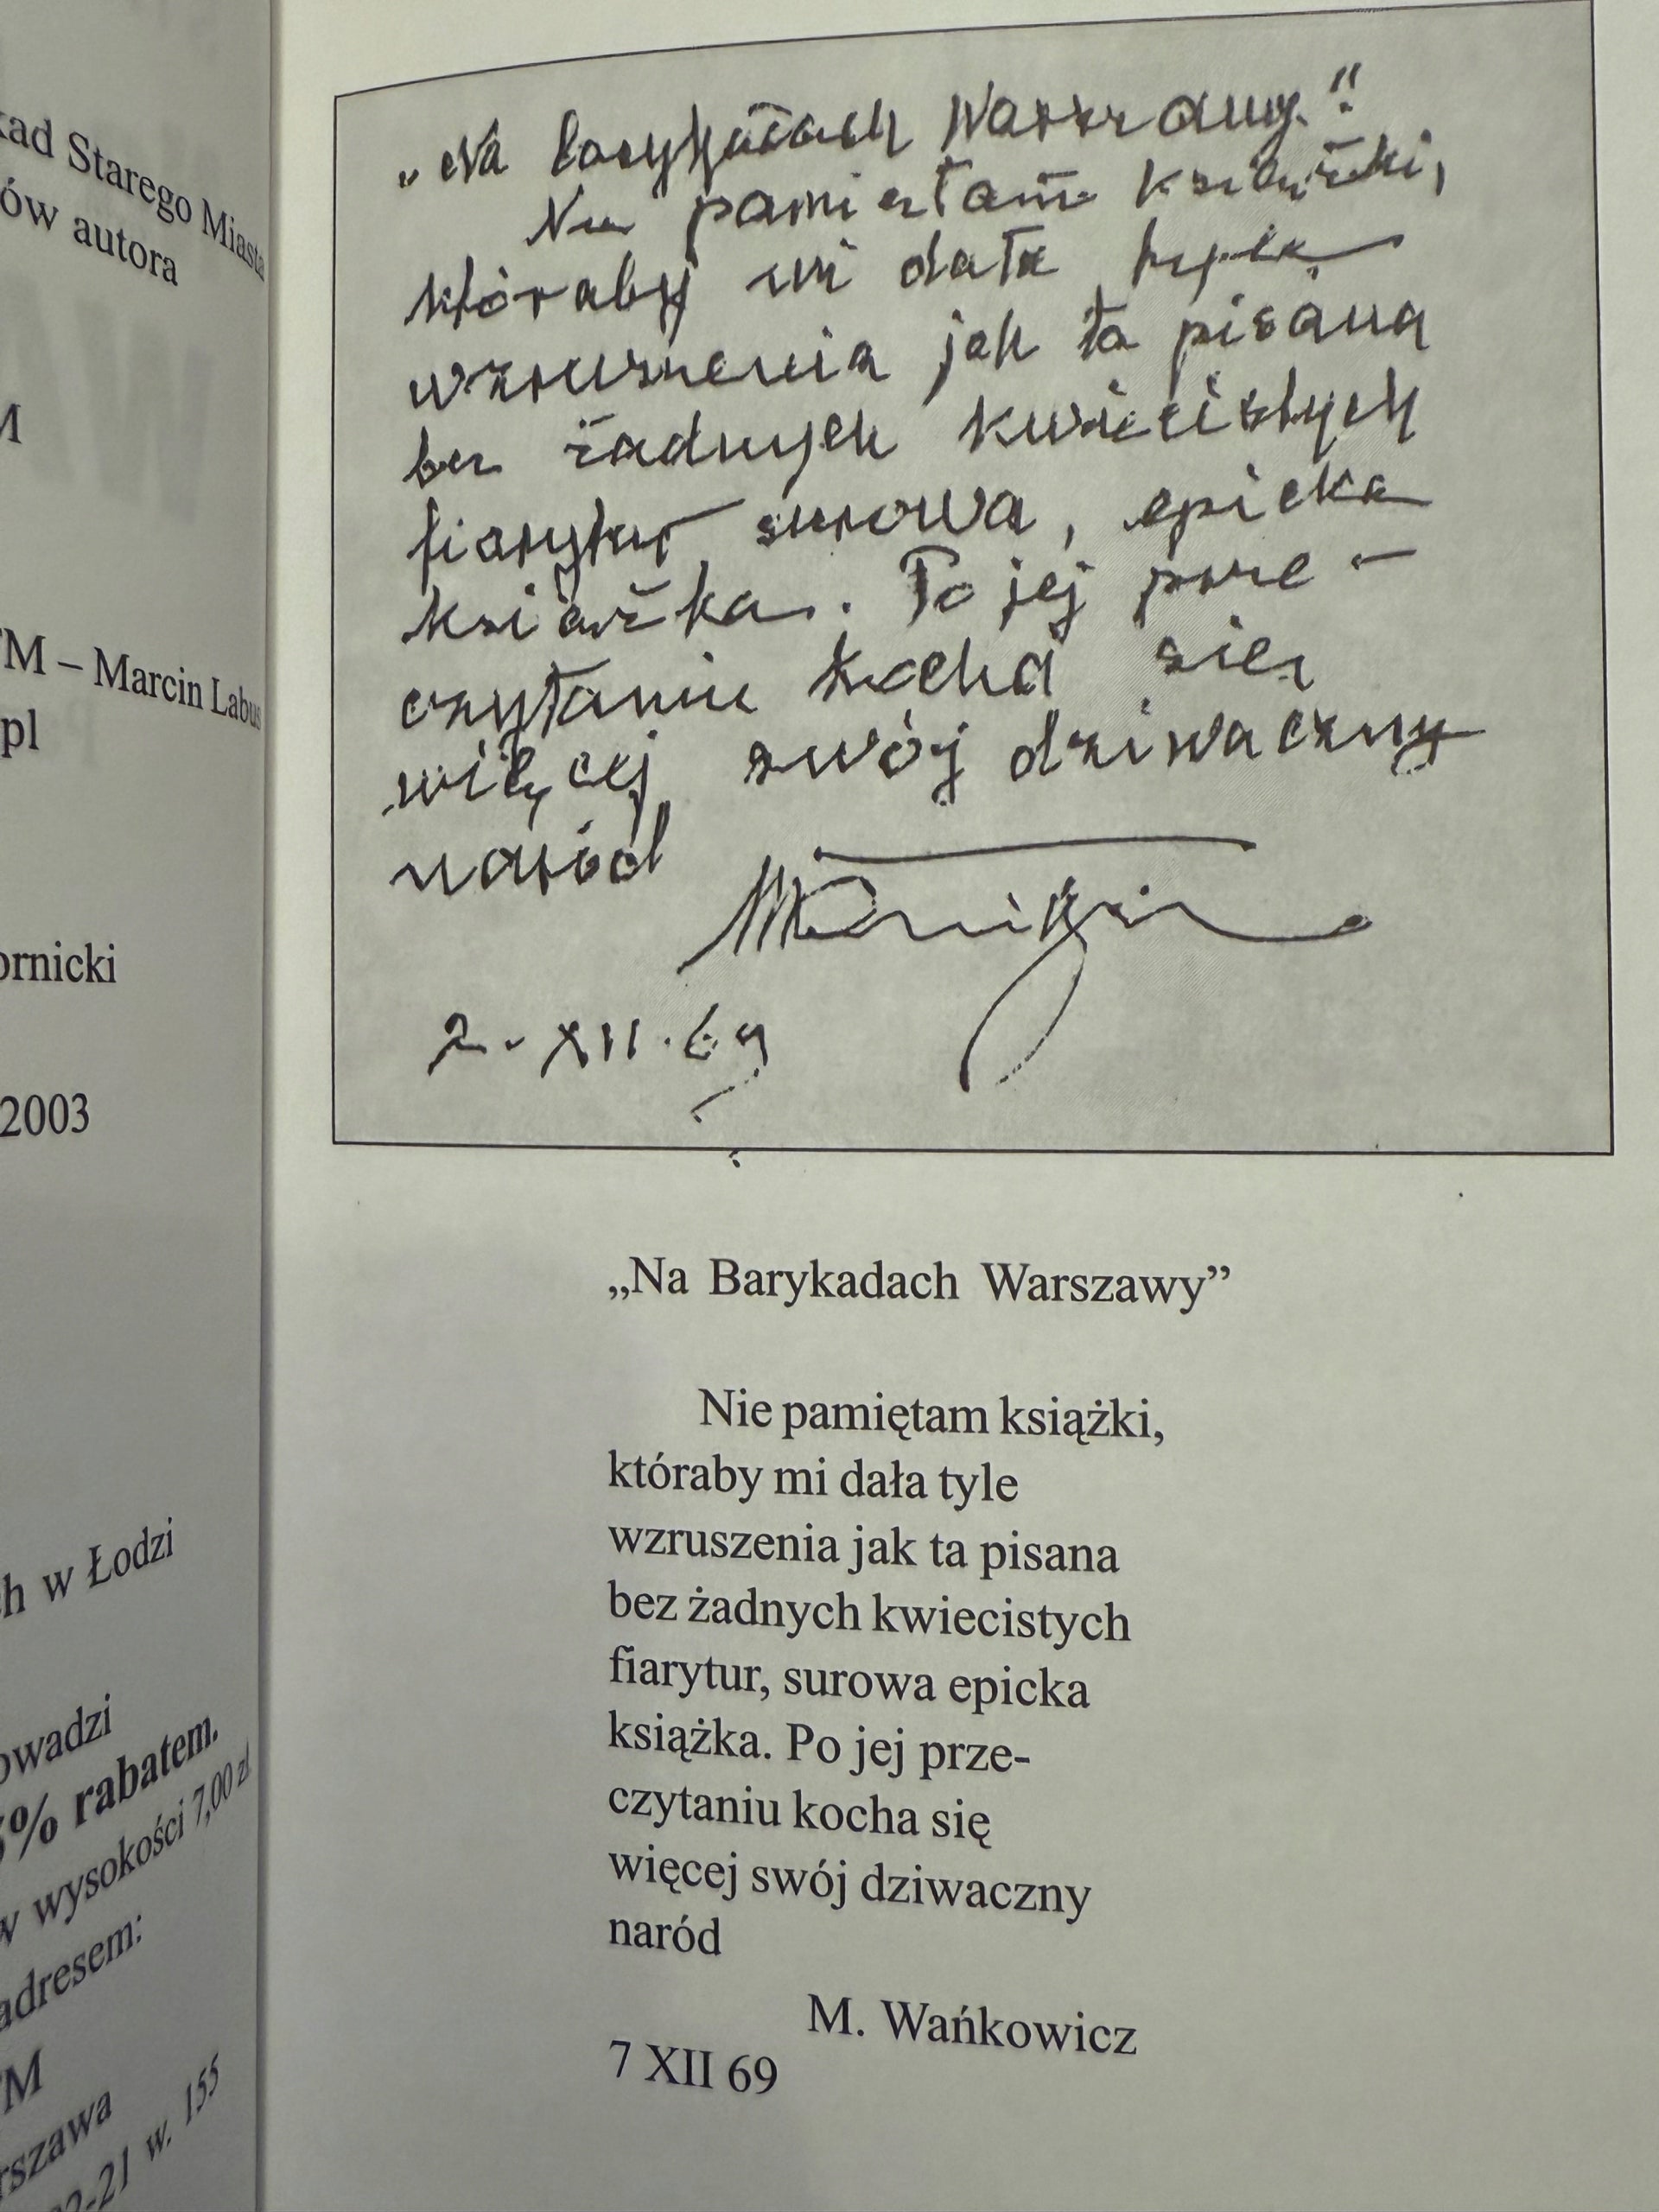 kad Starego Miasta
ów autora
M
TM – Marcin Labus
pl
ornicki
2003
ch w Łodzi
owadzi
5% rabatem.
w wysokości 7,00 zł
adresem:
TM
rszawa
02-21 w. 155
„Na barykadach Warszawy."
Nie pamiętam książki,
któraby mi dała tyle
wzruszenia jak ta pisana
bez żadnych kwiecistych
fiarytur surowa, epicka
książka. Po jej prze-
czytaniu kocha się
więcej swój dziwaczny
naród
2. XII. 69
„Na Barykadach Warszawy”
Nie pamiętam książki,
któraby mi dała tyle
wzruszenia jak ta pisana
bez żadnych kwiecistych
fiarytur, surowa epicka
książka. Po jej prze-
czytaniu kocha się
więcej swój dziwaczny
naród
M. Wańkowicz
7 XII 69